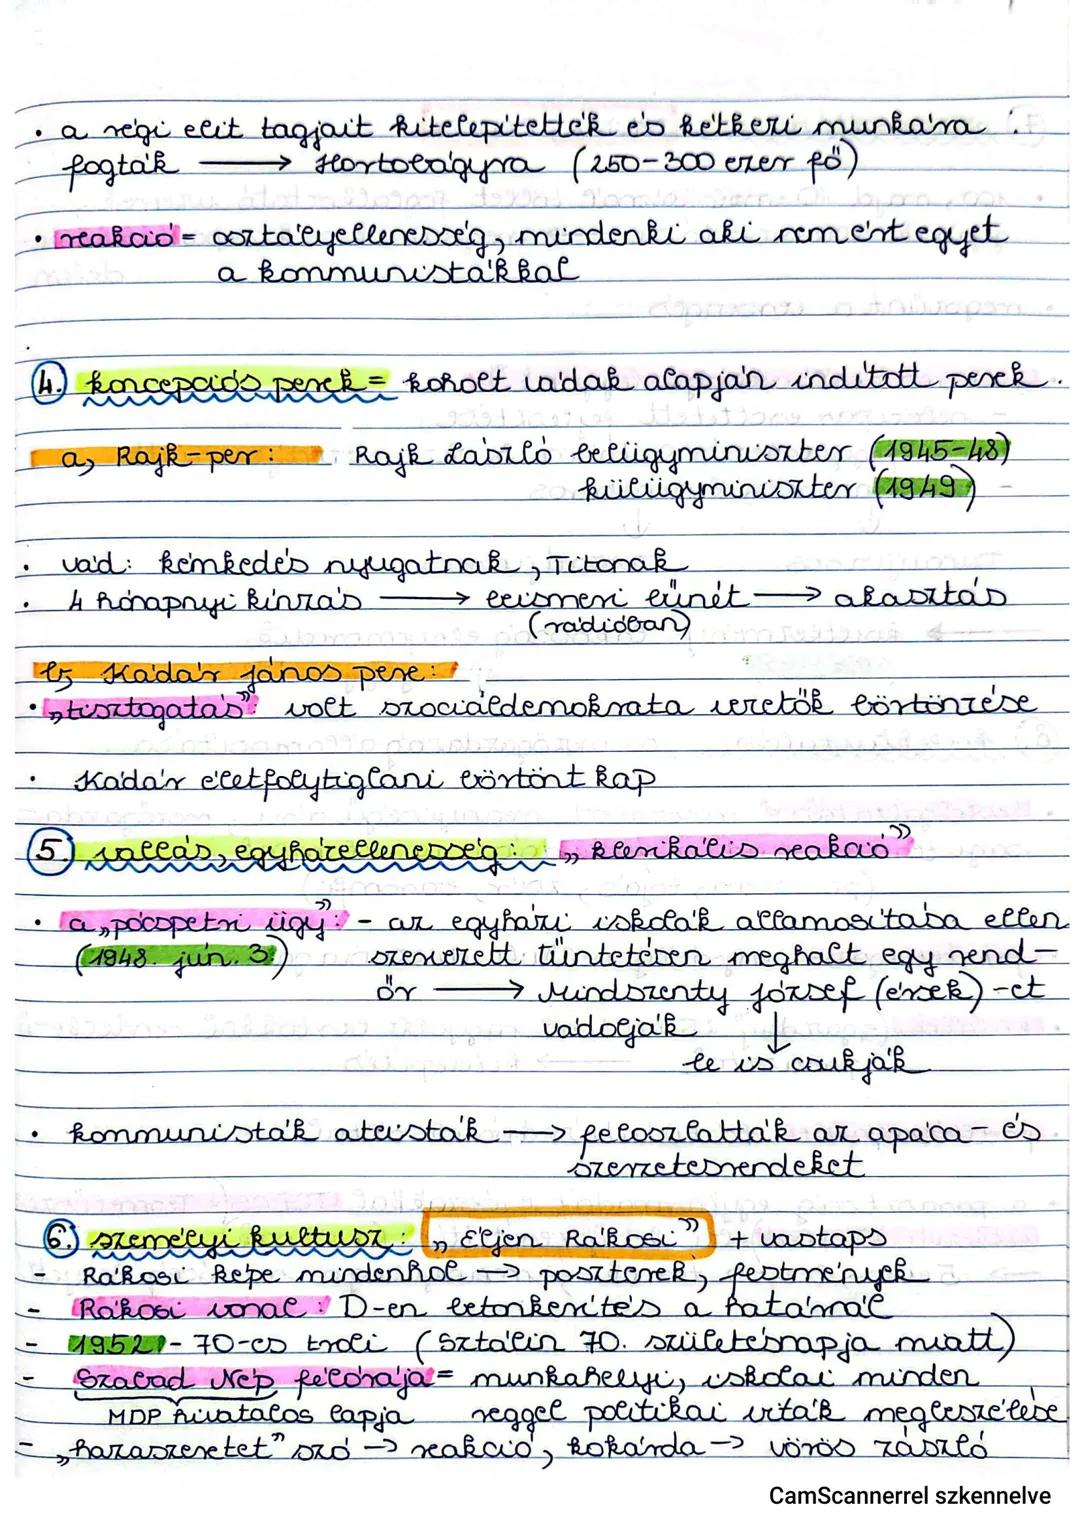 • a régi elit tagjait kitelepítették és kétkezi munkára
fogták → Hortobágyra (250-300 ezer fő)
• reakció = osztályellenesség, mindenki aki nem ért egyet
a kommunistákkal
4. koncepciós perek = koholt vádak alapján indított perek.
a, Rajk-per: Rajk László belügyminiszter (1945-48)
külügyminiszter (1949)
• vád: kémkedés nyugatnak, Titonak
• 4 hónapnyi kínzás → beismeri bűnét → akasztás
(rádióban)
b, Kádár János pere:
• „tisztogatás”: volt szociáldemokrata vezetők börtönzése
• Kádár életfolytiglani börtönt kap
5. vallás, egyházellenesség: „klerikális reakció”
• a „pócspetri ügy”: - az egyházi iskolák államosítása ellen
(1948. jún. 3.) szervezett tüntetésen meghalt egy rend-
őr → Mindszenty József (érsek)-et
vádolják ↓
le is csukják
• kommunisták ateisták → feloszlatták az apáca- és
szerzetesrendeket
6. személyi kultusz: „Éljen Rákosi” + vastaps
- Rákosi képe mindenhol → poszterek, festmények
- Rákosi vonal: D-en betonkerítés a határnál
- 1952 - 70-es troli (Sztálin 70. születésnapja miatt)
- Szabad Nép félórája = munkahelyi, iskolai minden
MDP hivatalos lapja reggel politikai viták megbeszélése
- „hazaszeretet” szó → reakció, kokárda → vörös zászló
CamScannerrel szkennelve